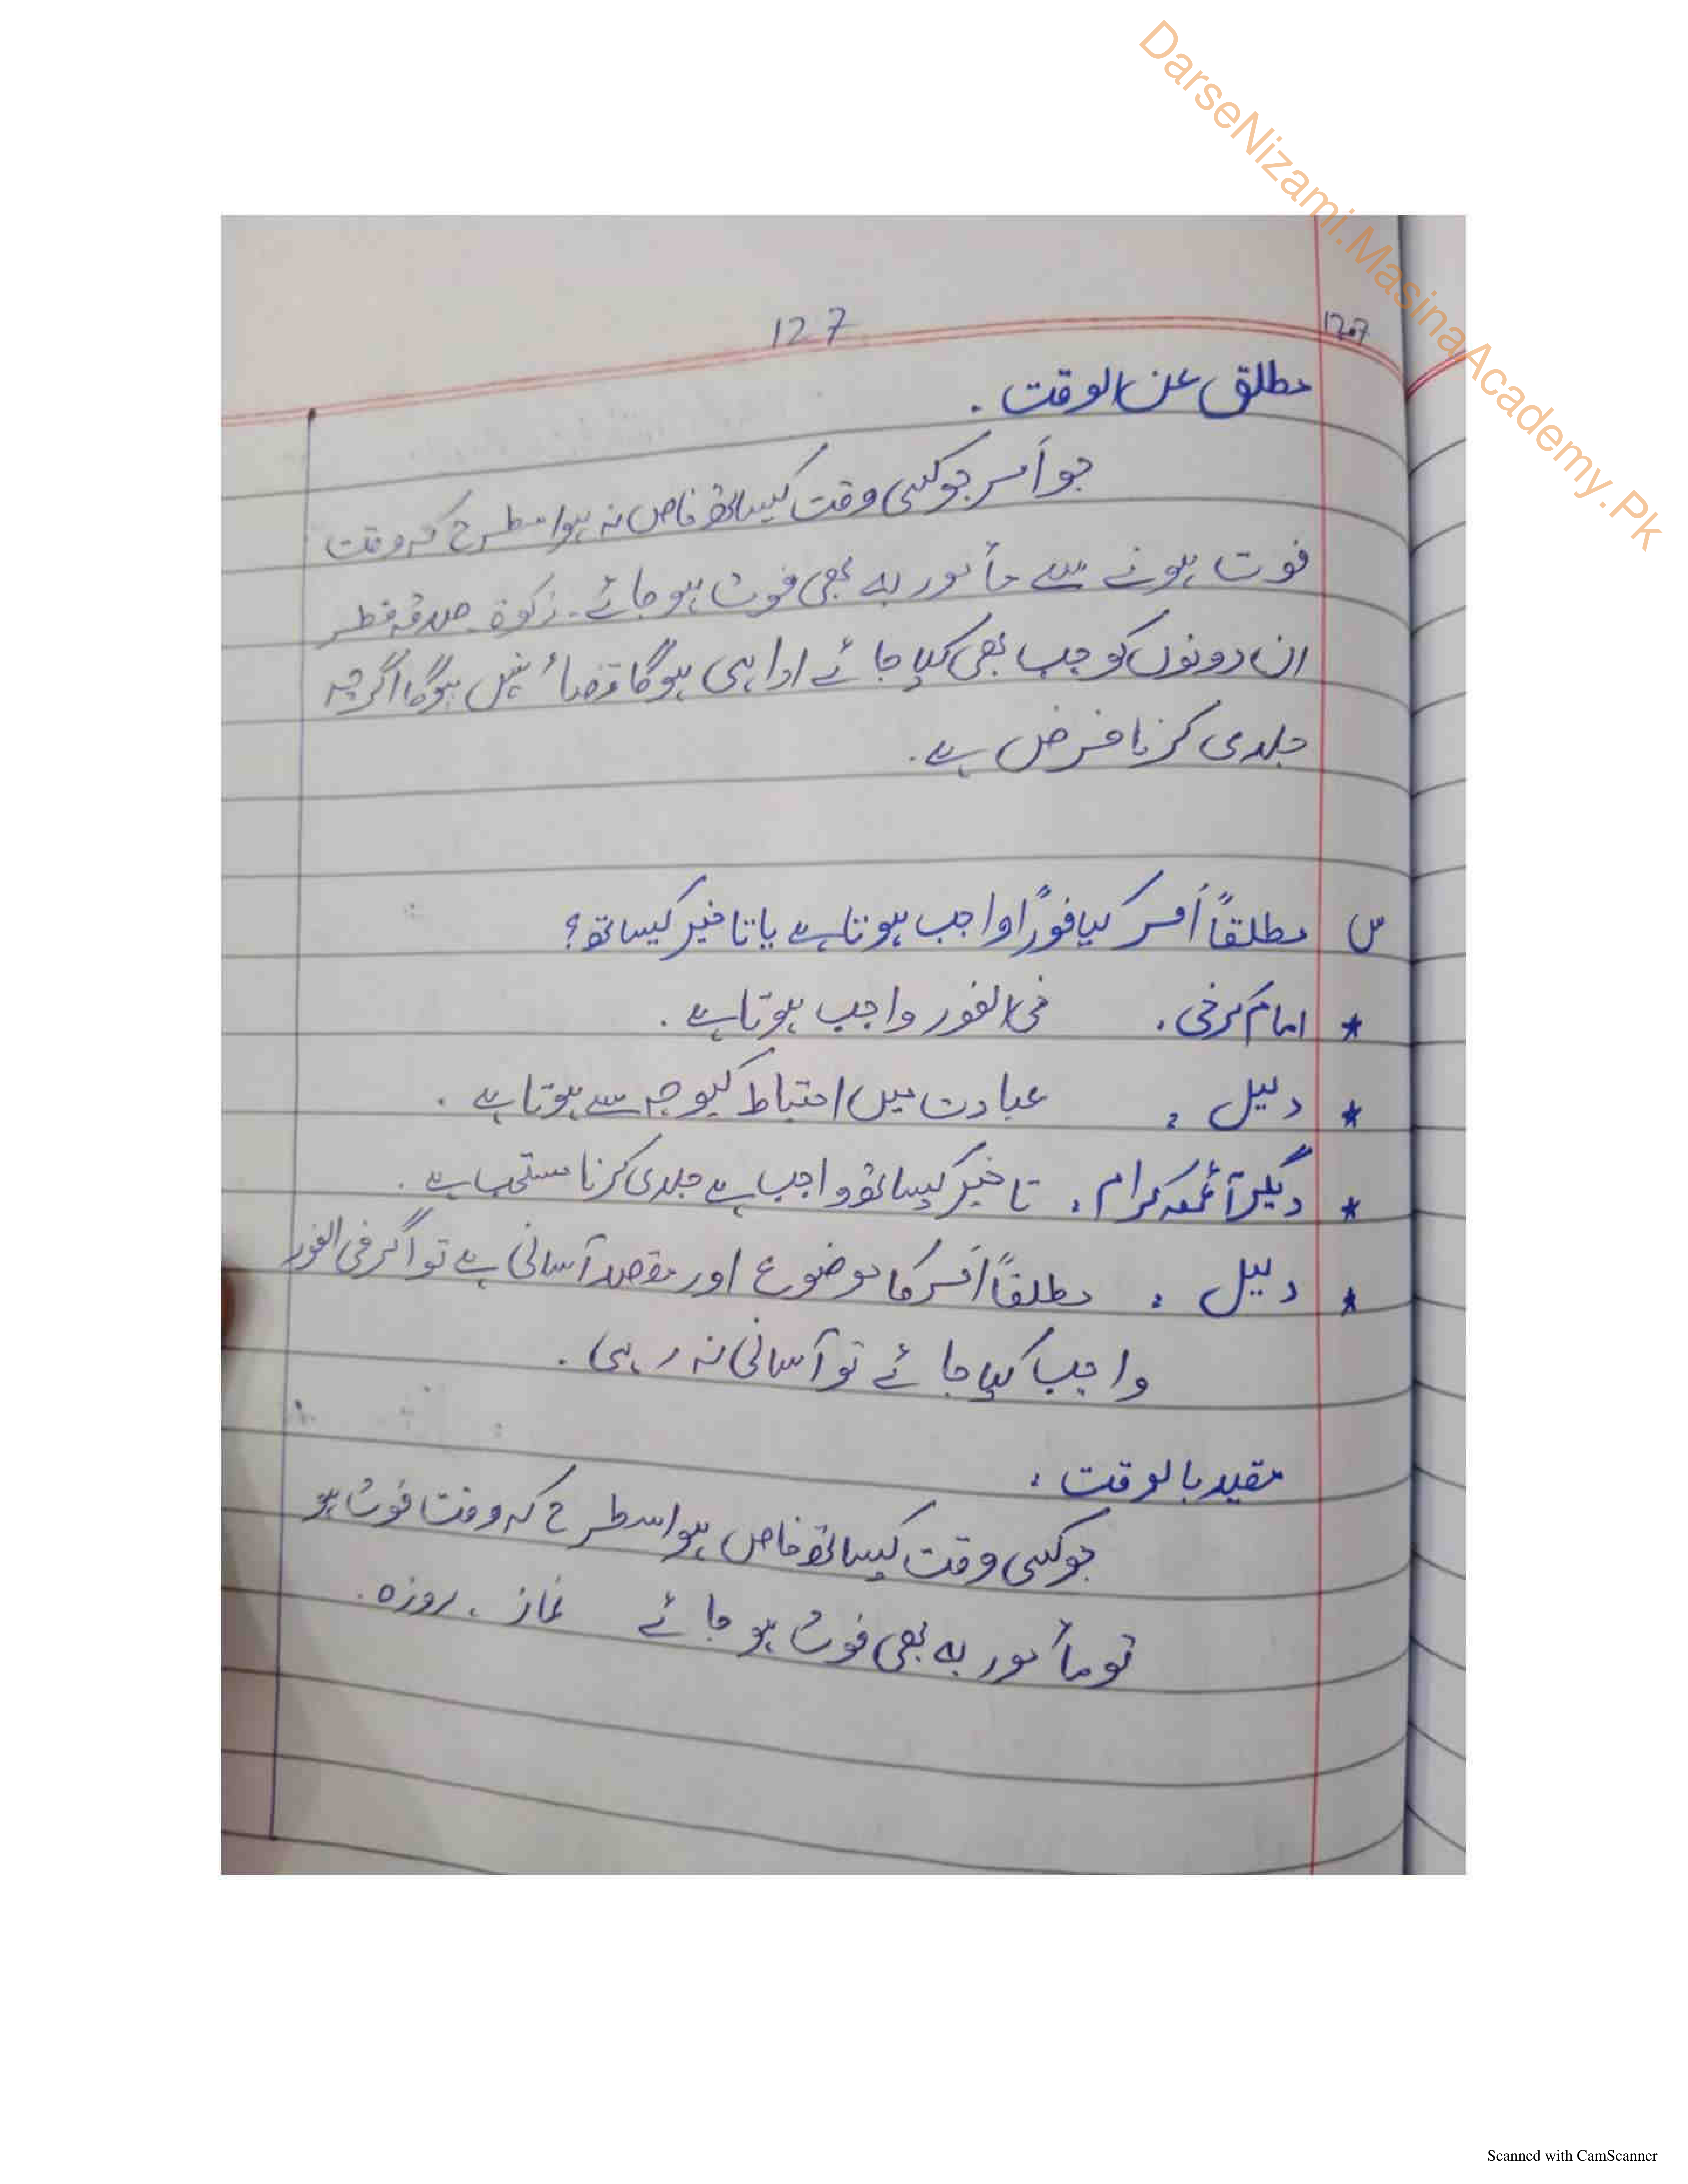 DarseNizami.MasinaAcademy.Pk
127
1207
مطلق عن الوقت .
جو أمر جو کسی وقت کیساتھ خاص نہ ہو اسطرح کہ وقت
فوت ہونے سے مأمور بہ بھی فوت ہو جائے ۔ زکوۃ ۔ صدقہ فطر
ان دونوں کو جب بھی کیا جائے ادا ہی ہوگا قضاءً نہیں ہوگا اگرچہ
جلدی کرنا فرض ہے ۔
س مطلقاً أمر کیا فوراً واجب ہوتا ہے یا تاخیر کیساتھ ؟
* امام کرخی . فی الفور واجب ہوتا ہے .
* دلیل : عبادت میں احتیاط کیوجہ سے ہوتا ہے .
* دیگر آئمہ کرام : تاخیر کیساتھ واجب ہے جلدی کرنا مستحب ہے .
* دلیل : مطلقاً أمر کا موضوع اور مقصد آسانی ہے تو اگر فی الفور
واجب کیا جائے تو آسانی نہ رہی .
مقید بالوقت :
جو کسی وقت کیساتھ خاص ہو اسطرح کہ وقت فوت ہو
تو مأمور بہ بھی فوت ہو جائے نماز ، روزہ .
Scanned with CamScanner